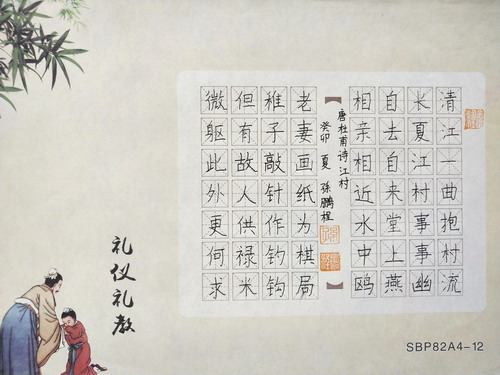 清江一曲抱村流
长夏江村事事幽
自去自来堂上燕
相亲相近水中鸥
唐杜甫诗江村
癸卯夏孙鹏程
老妻画纸为棋局
稚子敲针作钓钩
但有故人供禄米
微躯此外更何求
礼仪礼教
SBP82A4-12